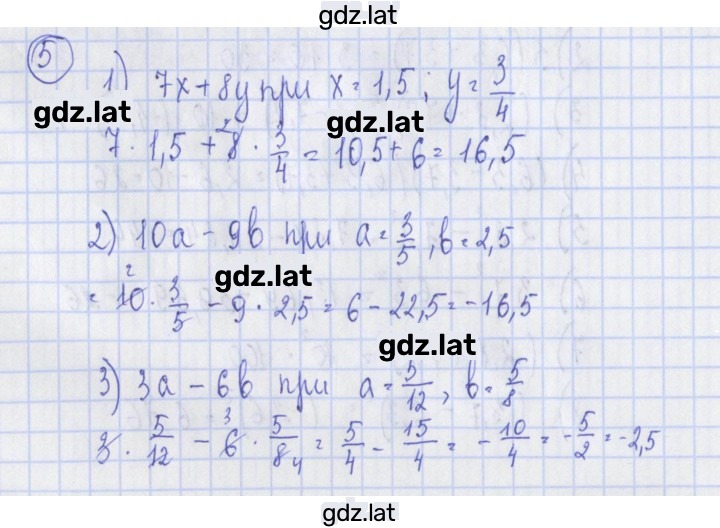 gdz.lat
5
1) 7x + 8y при x = 1,5 ; y = 3/4
gdz.lat
gdz.lat
7 · 1,5 + 8 2 · 3/4 = 10,5 + 6 = 16,5
2) 10a - 9b при a = 3/5 , b = 2,5
gdz.lat
= 10 2 · 3/5 - 9 · 2,5 = 6 - 22,5 = -16,5
gdz.lat
3) 3a - 6b при a = 5/12 , b = 5/8
3 · 5/12 - 6 3 · 5/8 4 = 5/4 - 15/4 = - 10/4 = - 5/2 = -2,5
gdz.lat